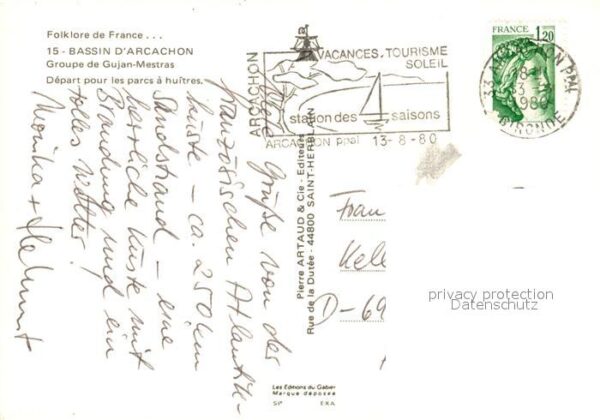 Folklore de France . . .
15 - BASSIN D'ARCACHON
Groupe de Gujan-Mestras
Départ pour les parcs à huîtres.
ARCACHON
VACANCES. TOURISME
SOLEIL
station des 4 saisons
ARCACHON ppal 13-8-80
33 ARCACHON PPAL
13-8
1980
GIRONDE
FRANCE
1,20
Viele Grüße von der
französischen Atlantik-
küste - ca. 250 km
Sandstrand - eine
herrliche Küste mit
Brandung und ein
tolles Wetter!
Monika + Helmut
Pierre ARTAUD & Cie - Editeurs
Rue de la Dutée - 44800 SAINT-HERBLAIN
Frau
Kele
D-69
privacy protection
Datenschutz
Les Editions du Gabier
Marque déposée
EKA